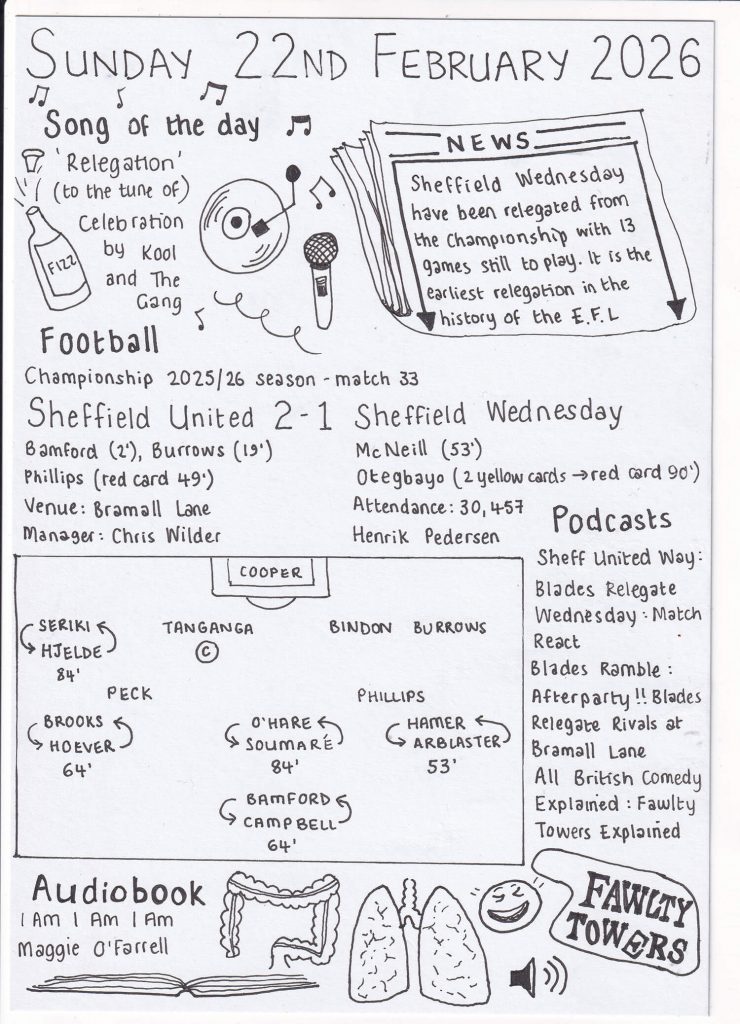 SUNDAY 22ND FEBRUARY 2026
Song of the day
'Relegation'
(to the tune of)
Celebration
by Kool
and The
Gang
FIZZ
NEWS
Sheffield Wednesday
have been relegated from
the Championship with 13
games still to play. It is the
earliest relegation in the
history of the E.F.L
Football
Championship 2025/26 season - match 33
Sheffield United 2-1 Sheffield Wednesday
Bamford (2'), Burrows (19')
Phillips (red card 49')
Venue: Bramall Lane
Manager: Chris Wilder
McNeill (53')
Otegbayo (2 yellow cards → red card 90')
Attendance: 30,457
Henrik Pedersen
COOPER
SERIKI
HJELDE
84'
TANGANGA
C
BINDON
BURROWS
PECK
PHILLIPS
BROOKS
HOEVER
64'
O'HARE
SOUMARÉ
84'
HAMER
ARBLASTER
53'
BAMFORD
CAMPBELL
64'
Podcasts
Sheff United Way:
Blades Relegate
Wednesday: Match
React
Blades Ramble:
Afterparty!! Blades
Relegate Rivals at
Bramall Lane
All British Comedy
Explained: Fawlty
Towers Explained
Audiobook
I Am I Am I Am
Maggie O'Farrell
FAWLTY
TOWERS